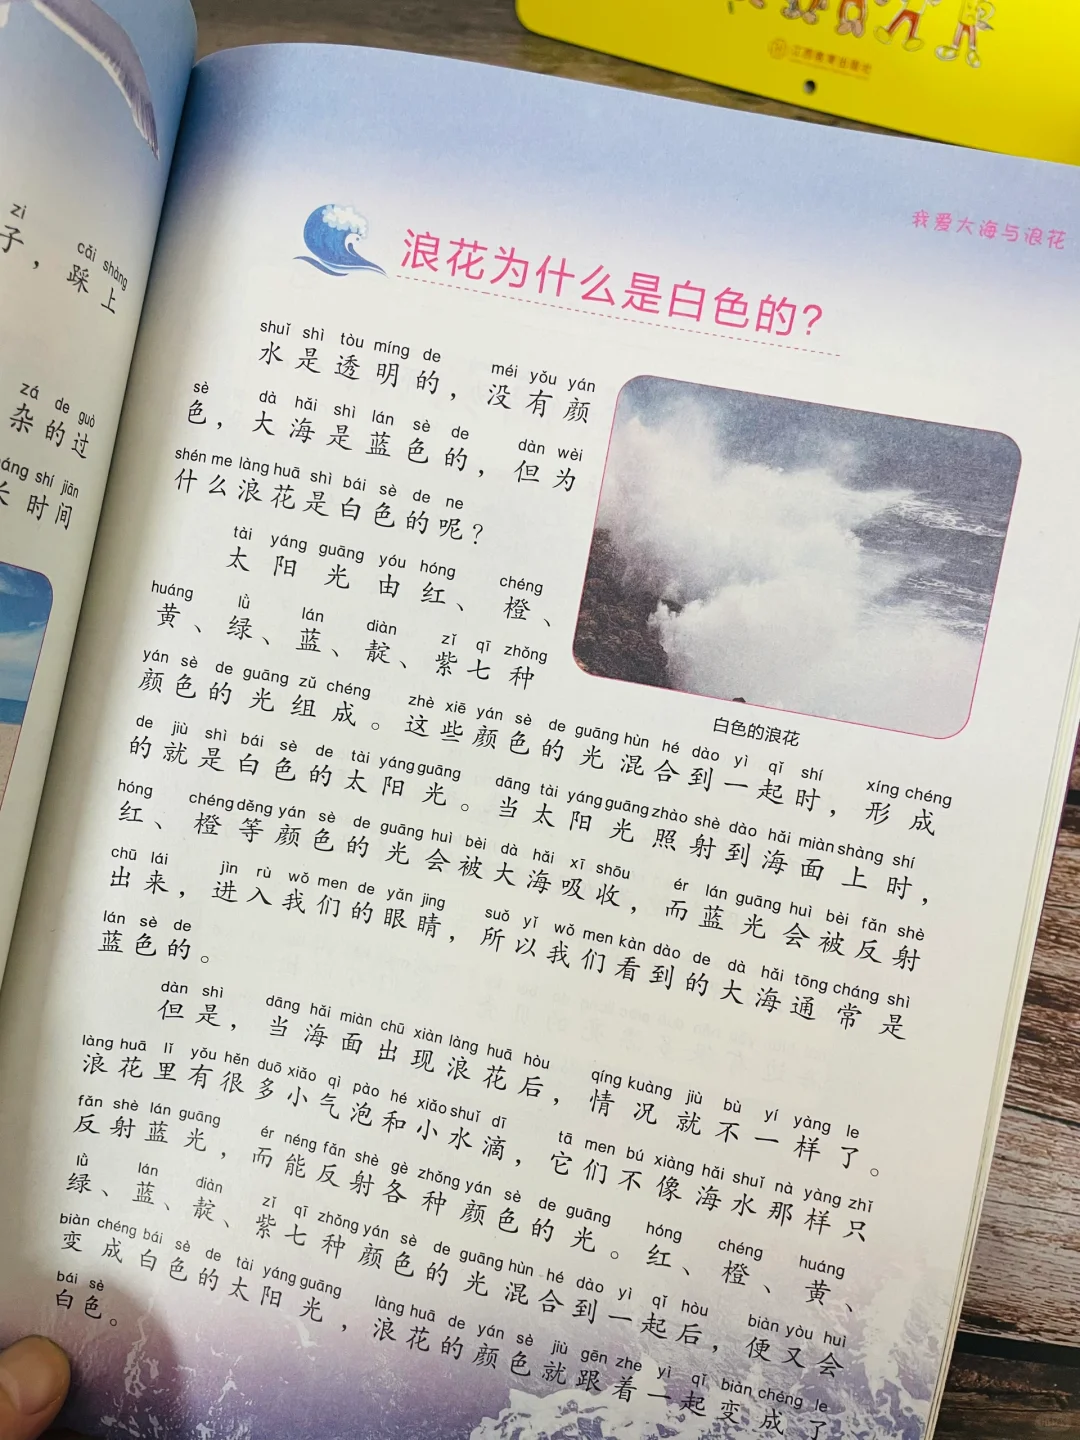 zi cǎi shàng
子，踩上
zá de guò
杂的过
áng shí jiān
长时间
江西教育出版社
我爱大海与浪花
浪花为什么是白色的？
shuǐ shì tòu míng de méi yǒu yán
水是透明的，没有颜
sè dà hǎi shì lán sè de dàn wèi
色，大海是蓝色的，但为
shén me làng huā shì bái sè de ne
什么浪花是白色的呢？
tài yáng guāng yóu hóng chéng
太阳光由红、橙、
huáng lǜ lán diàn zǐ qī zhǒng
黄、绿、蓝、靛、紫七种
白色的浪花
yán sè de guāng zǔ chéng zhè xiē yán sè de guāng hùn hé dào yì qǐ shí xíng chéng
颜色的光组成。这些颜色的光混合到一起时，形成
de jiù shì bái sè de tài yáng guāng dāng tài yáng guāng zhào shè dào hǎi miàn shàng shí
的就是白色的太阳光。当太阳光照射到海面上时，
hóng chéng děng yán sè de guāng huì bèi dà hǎi xī shōu ér lán guāng huì bèi fǎn shè
红、橙等颜色的光会被大海吸收，而蓝光会被反射
chū lái jìn rù wǒ men de yǎn jing suǒ yǐ wǒ men kàn dào de dà hǎi tōng cháng shì
出来，进入我们的眼睛，所以我们看到的大海通常是
lán sè de
蓝色的。
dàn shì dāng hǎi miàn chū xiàn làng huā hòu qíng kuàng jiù bù yí yàng le
但是，当海面出现浪花后，情况就不一样了。
làng huā lǐ yǒu hěn duō xiǎo qì pào hé xiǎo shuǐ dī tā men bú xiàng hǎi shuǐ nà yàng zhǐ
浪花里有很多小气泡和小水滴，它们不像海水那样只
fǎn shè lán guāng ér néng fǎn shè gè zhǒng yán sè de guāng hóng chéng huáng
反射蓝光，而能反射各种颜色的光。红、橙、黄、
lǜ lán diàn zǐ qī zhǒng yán sè de guāng hùn hé dào yì qǐ hòu biàn yòu huì
绿、蓝、靛、紫七种颜色的光混合到一起后，便又会
biàn chéng bái sè de tài yáng guāng làng huā de yán sè jiù gēn zhe yì qǐ biàn chéng le
变成白色的太阳光，浪花的颜色就跟着一起变成了
bái sè
白色。